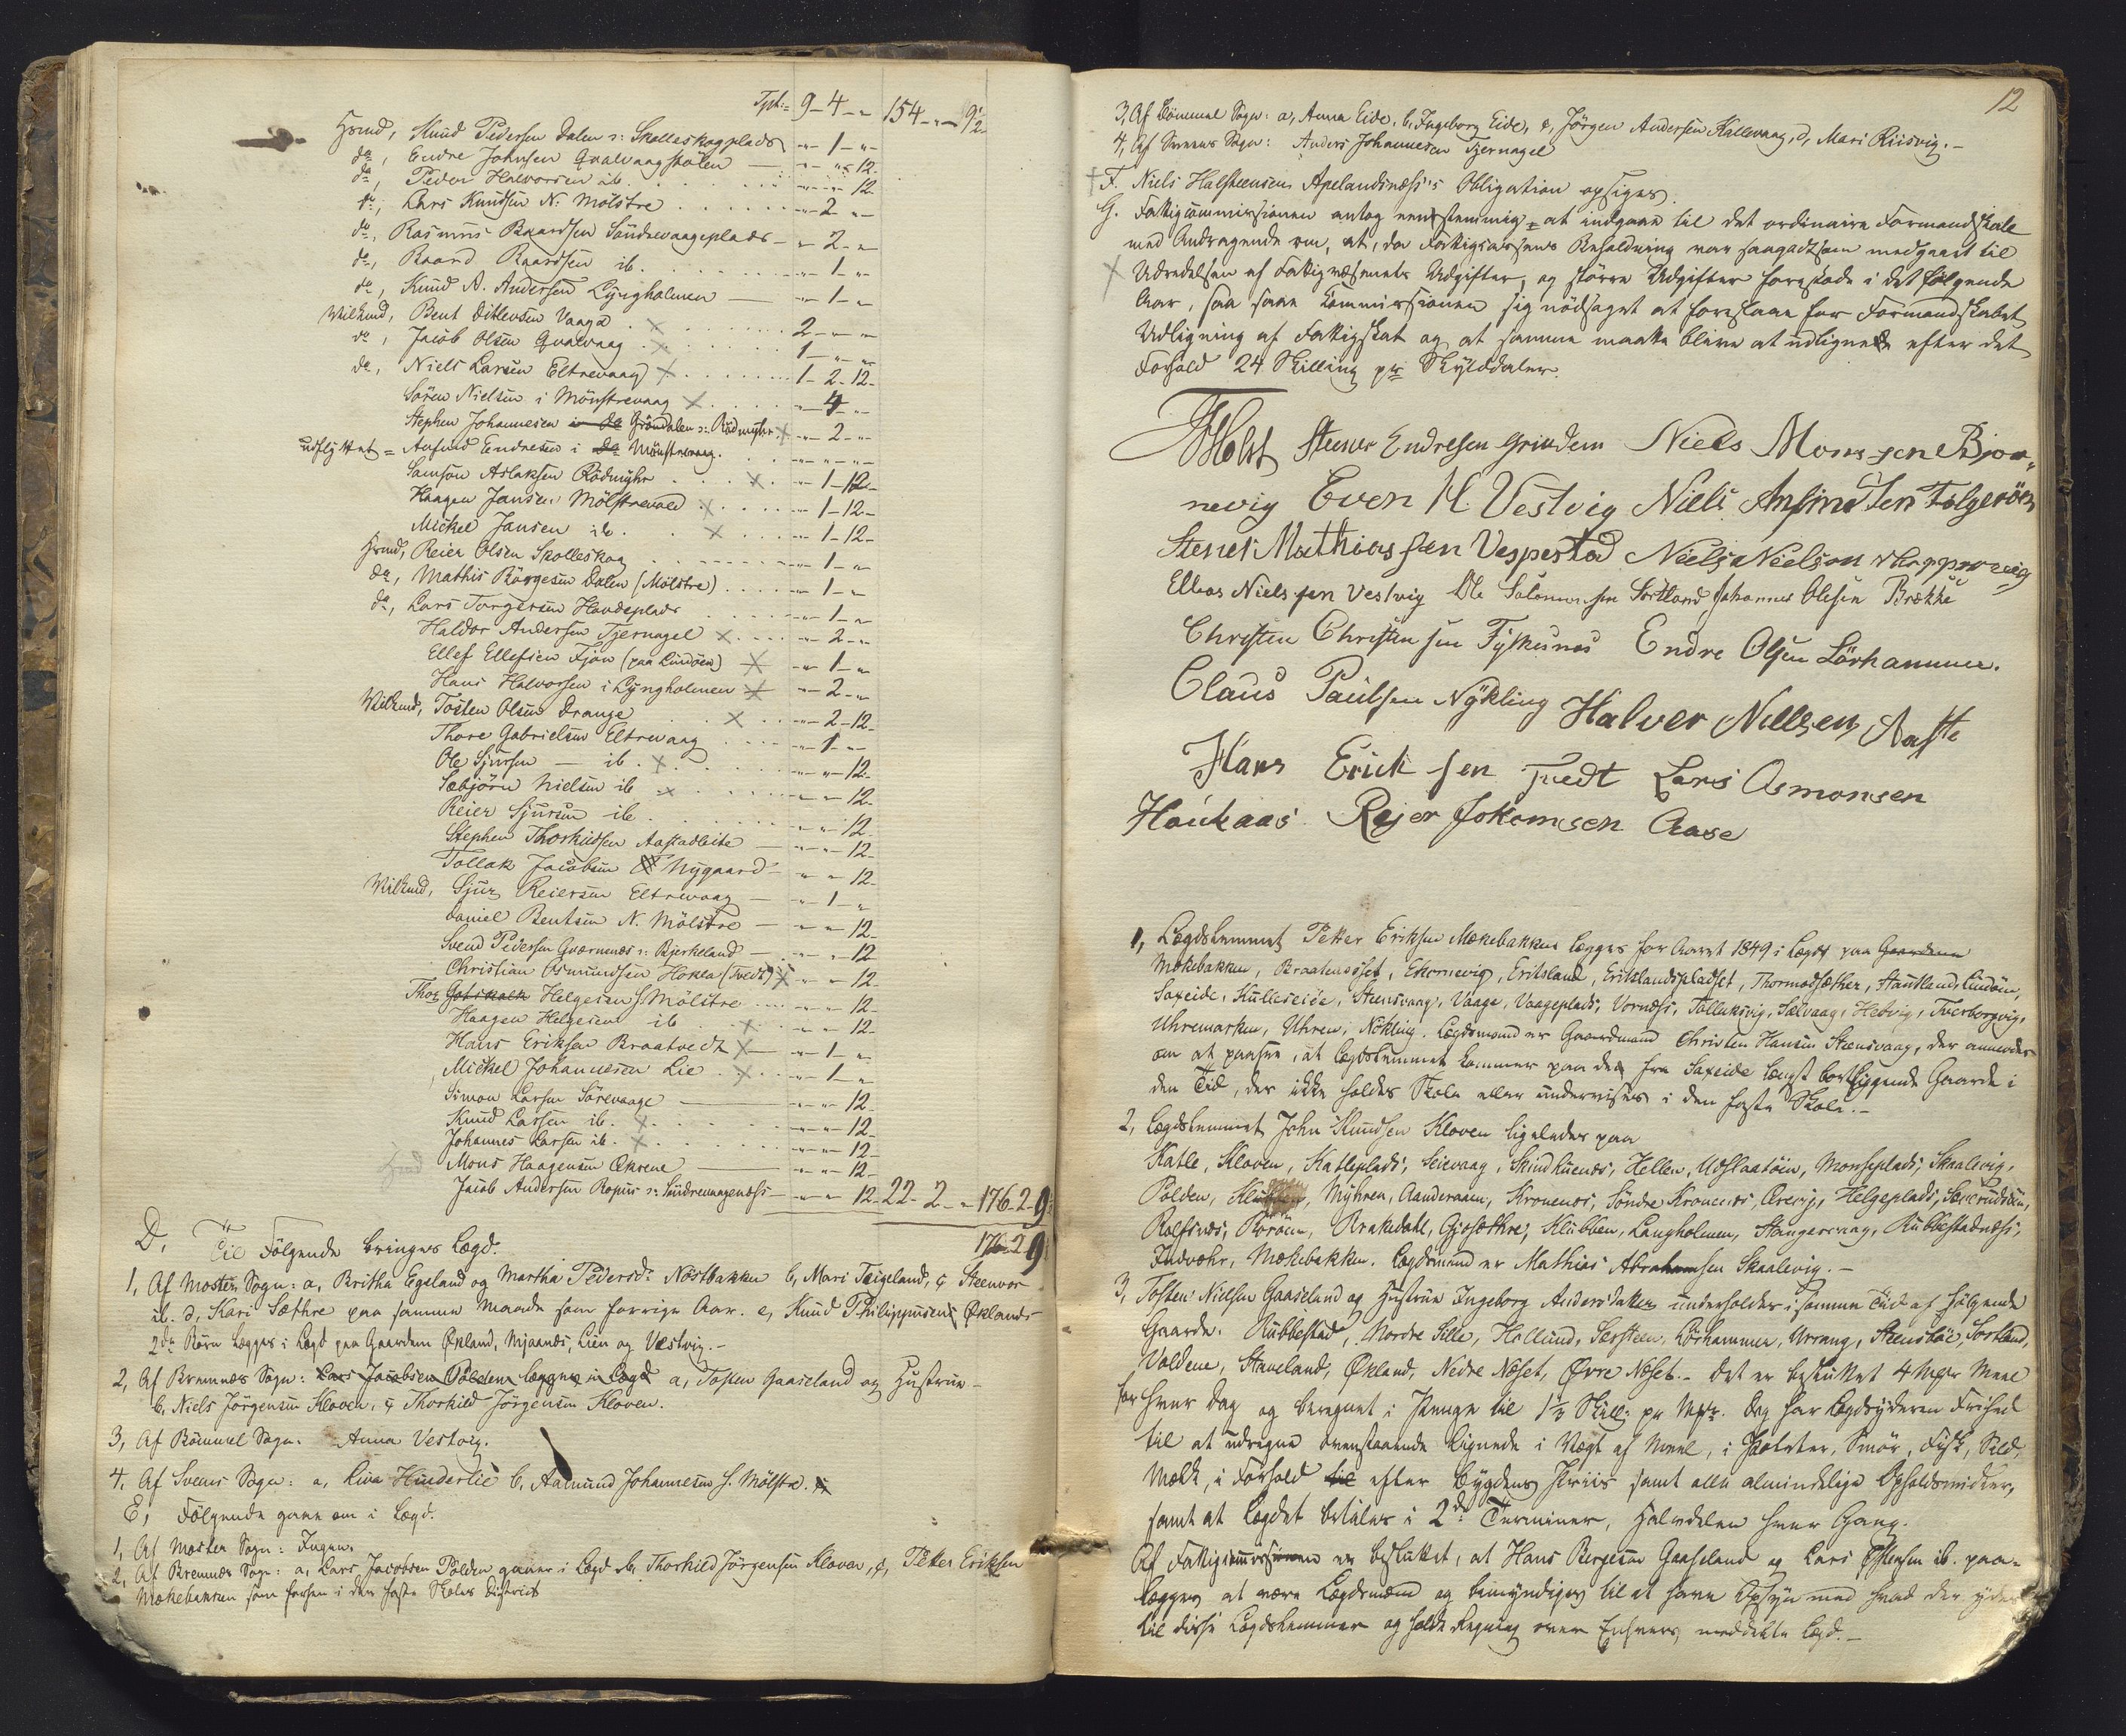 Tpt: 9-4-„ 154-„-9½
Hsmd, Knud Pedersen Dalen ɔ: Skolleskogplads -„-1-„-
do, Endre Johnsen Qvalvaagstølen — -„-„-12.
do, Peder Halvorsen ib. -„-„-12
do, Lars Knudsen N. Mølstre -„-2-„-
do, Rasmus Baardsen Søndrevaageplads -„-2-„
do, Baard Baardsen ib. -„-1-„-
do, Knud A. Andersen Lyngholmen — -„-1-„
Bent Ditlevsen Vaage × 2-„-„
do, Jacob Olsen Qvalvaag × 1-„-„
do, Niels Larsen Eltrevaag × 1-2-12-
Søren Nielsen i Mønstrevaag × -„-4-„
Stephen Johannesen i do Grøndalen ɔ: Rødmyhr × -„-2-„
udflyttet = Anfind Endresen i do Mønstrevaag. -„-„-„-
Samson Aslaksen Rødmyhr × -„-1-12-
Haagen Jansen Mølstrevold × -„-1-12-
Mickel Jansen ib. × -„-1-12-
Hsmd, Reier Olsen Skolleskog -„-1-„
do, Mathis Børgesen Dalen (Mølstre) -„-1-„
do, Lars Torgersen Hovdeplads -„-1-„
Haldor Andersen Tjernagel × -„-2-„
Ellef Ellefsen Fjon (paa Lindøen) × -„-1-„
Hans Halvorsen i Lyngholmen × -„-2-„
Tosten Olsen Drange × -„-2-12-
Thore Gabrielsen Eltrevaag -„-1-„
Ole Sjursen — ib. × -„-„-12-
Sæbjørn Nielsen ib × -„-„-12-
Reier Sjursen ib. -„-„-12-
Stephen Thorkildsen Aastadleite — -„-„-12-
Tollak Jacobsen Nygaard -„-„-12-
Sjur Reiersen Eltrevaag — -„-1-„
Daniel Bentsen N. Mølstre — -„-„-12-
Svend Pedersen Qværnenes ɔ: Bjerkeland — -„-„-12
Christian Asmundsen Hokla (Tvedt) × -„-„-12-
Thor Gotskalk Helgesen S. Mølstre -„-„-12-
Haagen Helgesen ib × -„-„-12-
Hans Eriksen Braatvedt × -„-1-„
Mickel Johannesen Lie × -„-1-„
Simon Larsen Sørevaage — -„-„-12-
Knud Larsen ib. × -„-„-12-
Johannes Larsen ib. × -„-„-12-
Mons Haagensen Økrene — -„-„-12-
Jacob Andersen Ropus ɔ: Søndrevaagenæss — -„-„-12- 22-2-„ 176-2-9
D, Til Følgende bringes Lægd. 176-2-9
1, Af Moster Sogn: a, Britha Egeland og Martha Pedersdr. Nøstbakken b, Mari Teigeland, c, Steenvor
ib. d, Kari Sæthre paa samme Maade som forrige Aar. e, Knud Philippusens Øklands
2de Børn lægges i Lægd paa Gaardene Økland, Mjaanes, Lien og Vestvig. —
2, Af Bremnes Sogn: Lars Jacobsen Polden lægges i Lægd a, Tosten Gaaseland og Hustrue —
b, Niels Jørgensen Kloven, c, Thorkild Jørgensen Kloven.
3, Af Bømmel Sogn: Anna Vestvig.
4. Af Sveens Sogn: a, Liva Hinderlie b, Aamund Johannesen S. Mølstre.
E, Følgende gaae om i Lægd.
1, Af Moster Sogn: Ingen.
2, Af Bremnes Sogn: a, Lars Jacobsen Polden gaaer i Lægd b, Thorkild Jørgensen Kloven, c, Petter Eriksen
Mækebakken som forhen i den faste Skoles District
12
3, Af Bømmel Sogn: a, Anna Eide, b, Ingeborg Eide, c, Jørgen Andersen Kallevaag, d, Mari Riisvig. —
4, Af Sveens Sogn: Anders Johannesen Tjernagel
F. Niels Halsteensens Apelandsnæss's Obligation opsiges.
G. Fattigcommissionen antog eenstemmig at indgaae til det ordinaire Formandskab
med Andragende om, at, da Fattigcassens Beholdning var saagodtsom medgaaet til
× Udredelsen af Fattigvæsenets Udgifter, og større Udgifter forestode i det følgende
Aar, saa saae Commissionen sig nødsaget at foreslaae for Formandskabet
Udligning af Fattigskat og at samme maatte blive at udligne efter det
Forhold 24 Skilling pr Skylddaler.
Holst Steener Endresen Grindem Niels Monssen Bjør-
nevig Even H Vestvig Niels Anfindsen Følgerøen
Stener Mathiassen Vespestad Niels Nielsen
Ellias Nielssen Vestvig Ole Salomonsen Sortland Johannes Olesen Brække
Christen Christensen Fylkesnes Endre Olsen Lørhammer.
Claus Paulsen Nykling Halver Nillsen Aaste
Hans Ericksen Tvedt Lars Asmonsen
Haukaas Rejer Jokomsen Aase
1, Lægdslemmet Petter Eriksen Mækebakken lægges for Aaret 1849 i Lægd paa Gaardene
Mækebakken, Braatensøset, Ekornevig, Eritsland, Eritslandspladset, Thormodsæther, Stautland, Lindøen,
Saxeide, Kulleseide, Steensvaag, Vaage, Vaageplads, Vornæss, Tolleksvig, Sælvaag, Hedvig, Tverborgvig,
Uhremarken, Uhren, Nøkling. Lægdsmand er Gaardmand Christen Hansen Steensvaag, der anmodes
om at paasee, at Lægdslemmet kommer paa de fra Saxeide længst bortliggende Gaarde i
den Tid, der ikke holdes Skole eller undervises i den faste Skole. —
2, Lægdslemmet John Knudsen Kloven ligeledes paa
Katle, Kloven, Katleplads, Seievaag, Skindhuenes, Hellen, Udslaatøen, Monseplads, Skaalevig,
Polden, Myhren, Aanderaaen, Kronenes, Søndre Kronenes, Ørevig, Helgeplads,
Rolfsnes, Børøen, Brakedahl, Gjøsæthre, Klubben, Langholmen, Stangarevaag, Rubbestadnæss,
Indvøhr, Mækebakken. Lægdsmand er Mathias Abrahamsen Skaalevig. —
3, Tosten Nielsen Gaaseland og Hustrue Ingeborg Andersdatter underholdes i samme Tid af følgende
Gaarde: Rubbestad, Nordre Sille, Hollund, Sersteen, Lørhammer, Urrang, Steensløe, Sortland,
Valdene, Staveland, Økland, Nedre Næset, Øvre Næset. — Det er besluttet 4 Mrkr Meel
for hver Dag og beregnet i Penge til 1⅓ Skill: pr Mrk. Dog har Lægdsyderen Frihed
til at udregne ovenstaaende Lignede i Vægt af Meel, i Poteter, Smør, Fisk, Sild,
Melk, i Forhold til efter Bygdens Priis samt alle almindelige Opholdsmidler,
samt at Lægdet betales i 2de Terminer, Halvdelen hver Gang.
Af Fattigcommissionen er besluttet, at Hans Børgesen Gaaseland og Lars Østensen ib. paa-
lægges at være Lægdsmænd og bemyndiges til at have Opsyn med hvad der ydes
til disse Lægdslemmer og holde Regning over Enhvers meddeelte Lægd. —